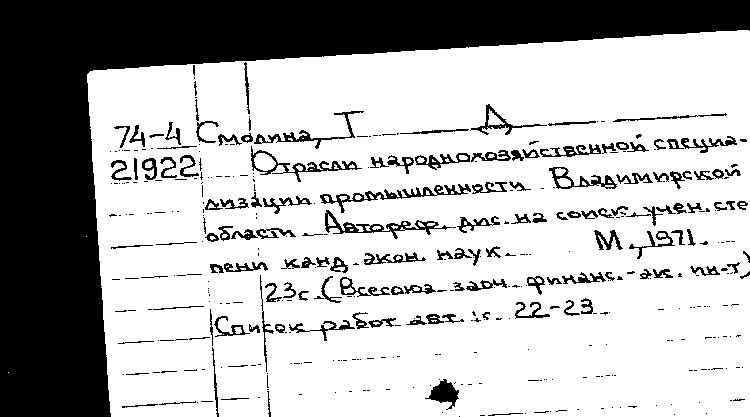 74-4 Смолина, Т Д
21922 Отрасли народнохозяйственной специа-
лизации промышленности Владимирской
области. Автореф. дис. на соиск. учен. сте
пени канд. экон. наук. М., 1971.
23с. (Всесоюз заоч. финанс.-эк. ин-т)
Список работ авт.: с. 22-23.